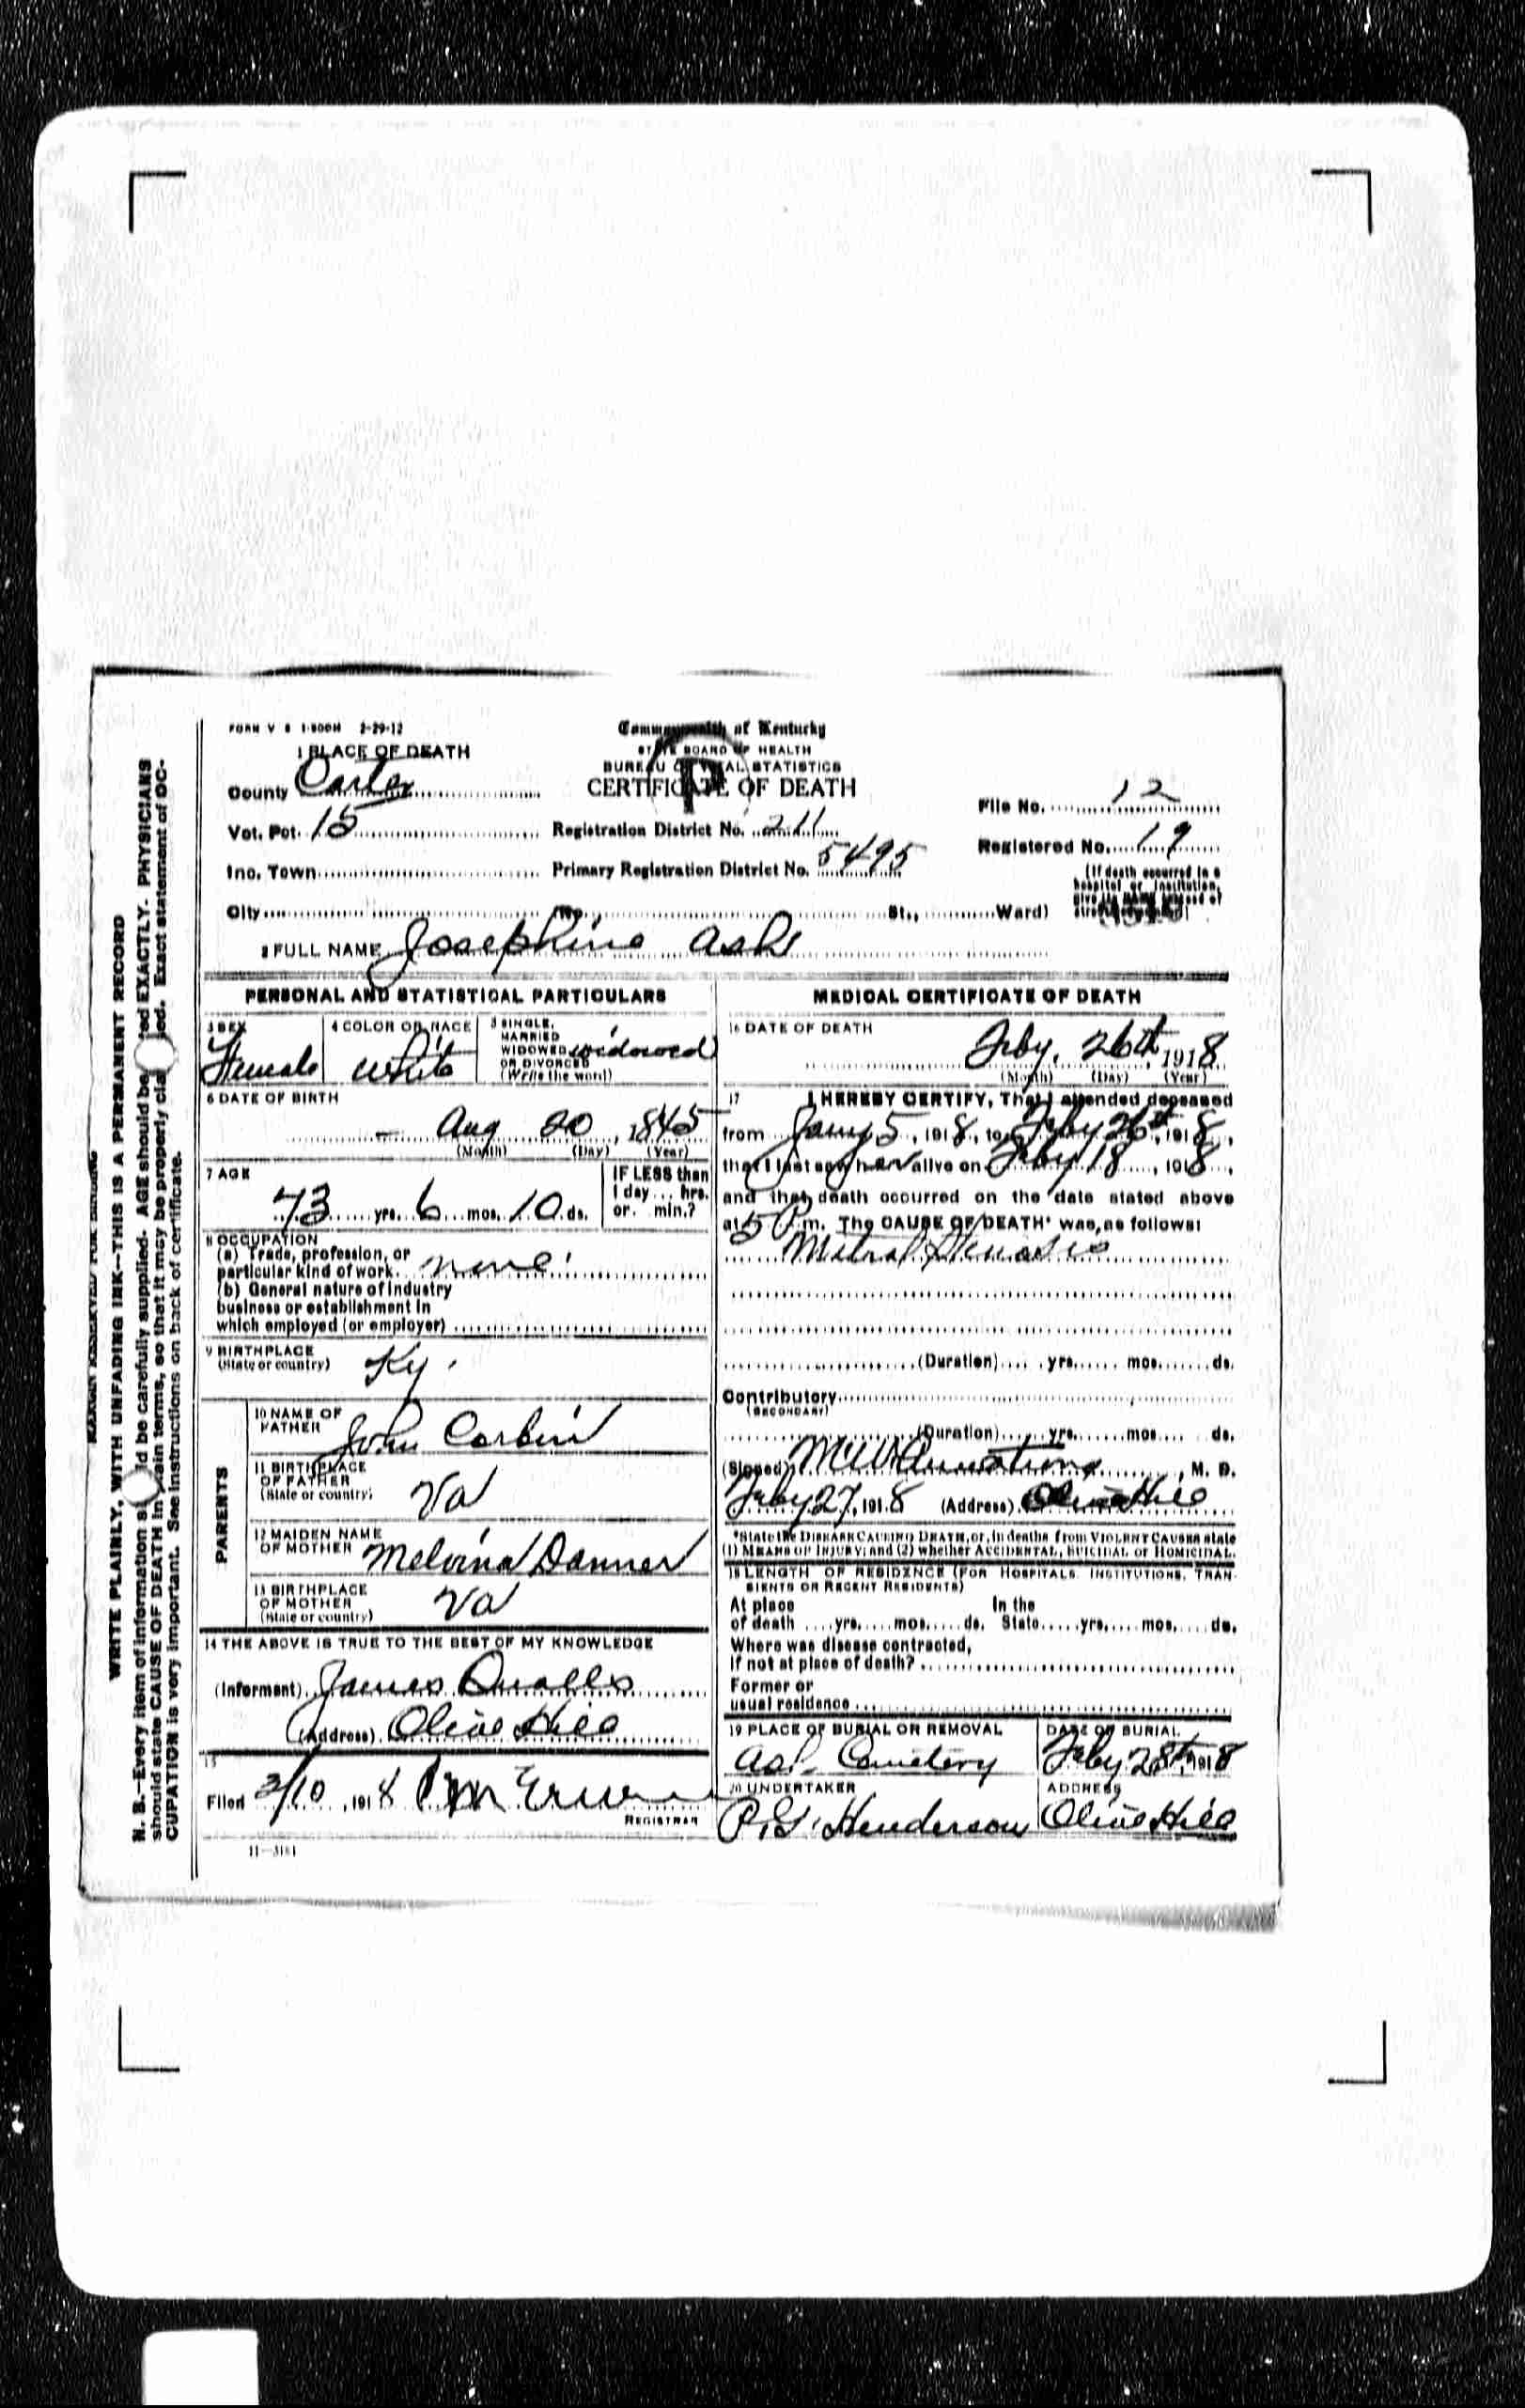 FORM V S 1-500M 2-29-12
1 PLACE OF DEATH
County Carter
Vot. Pct. 15
Inc. Town
City (No. St., Ward)
Commonwealth of Kentucky
STATE BOARD OF HEALTH
BUREAU OF VITAL STATISTICS
CERTIFICATE OF DEATH
Registration District No. 211
Primary Registration District No. 5495
File No. 12
Registered No. 19
(If death occurred in a
hospital or institution,
give its NAME instead of
2 FULL NAME Josephine Ash
PERSONAL AND STATISTICAL PARTICULARS
3 SEX Female
4 COLOR OR RACE White
5 SINGLE,
MARRIED
WIDOWED widowed
OR DIVORCED
(Write the word)
6 DATE OF BIRTH
Aug 20, 1845
(Month) (Day) (Year)
7 AGE
73 yrs. 6 mos. 10 ds.
IF LESS than
1 day... hrs.
or. min.?
8 OCCUPATION
(a) Trade, profession, or
particular kind of work. none
(b) General nature of industry
business or establishment in
which employed (or employer)
9 BIRTHPLACE
(State or country) Ky.
PARENTS
10 NAME OF
FATHER John Corbin
11 BIRTHPLACE
OF FATHER
(State or country) Va
12 MAIDEN NAME
OF MOTHER Melvina Danner
13 BIRTHPLACE
OF MOTHER
(State or country) Va
14 THE ABOVE IS TRUE TO THE BEST OF MY KNOWLEDGE
(Informant) James Qualls
(Address) Olive Hill
15
Filed 3/10, 1918
REGISTRAR
11-3181
MEDICAL CERTIFICATE OF DEATH
16 DATE OF DEATH
Feby. 26th, 1918
(Month) (Day) (Year)
17 I HEREBY CERTIFY, That I attended deceased
from Jany 5, 1918, to Feby 26th, 1918,
that I last saw her alive on Feby 18, 1918,
and that death occurred on the date stated above
at 5 P.m. The CAUSE OF DEATH* was, as follows:
Mitral Stenosis
(Duration) yrs. mos. ds.
Contributory
(SECONDARY)
(Duration) yrs. mos. ds.
(Signed) , M. D.
Feby 27, 1918 (Address) Olive Hill
*State the DISEASE CAUSING DEATH, or, in deaths from VIOLENT CAUSES state
(1) MEANS OF INJURY; and (2) whether ACCIDENTAL, SUICIDAL or HOMICIDAL.
18 LENGTH OF RESIDENCE (FOR HOSPITALS, INSTITUTIONS, TRAN-
SIENTS OR RECENT RESIDENTS)
At place In the
of death yrs. mos. ds. State yrs. mos. ds.
Where was disease contracted,
If not at place of death?
Former or
usual residence
19 PLACE OF BURIAL OR REMOVAL
Ash Cemetery
DATE OF BURIAL
Feby 28th, 1918
20 UNDERTAKER
P.G. Henderson
ADDRESS
Olive Hill
MARGIN RESERVED FOR BINDING
WRITE PLAINLY, WITH UNFADING INK--THIS IS A PERMANENT RECORD
N. B.--Every item of information should be carefully supplied. AGE should be stated EXACTLY. PHYSICIANS
should state CAUSE OF DEATH in plain terms, so that it may be properly classified. Exact statement of OC-
CUPATION is very important. See instructions on back of certificate.